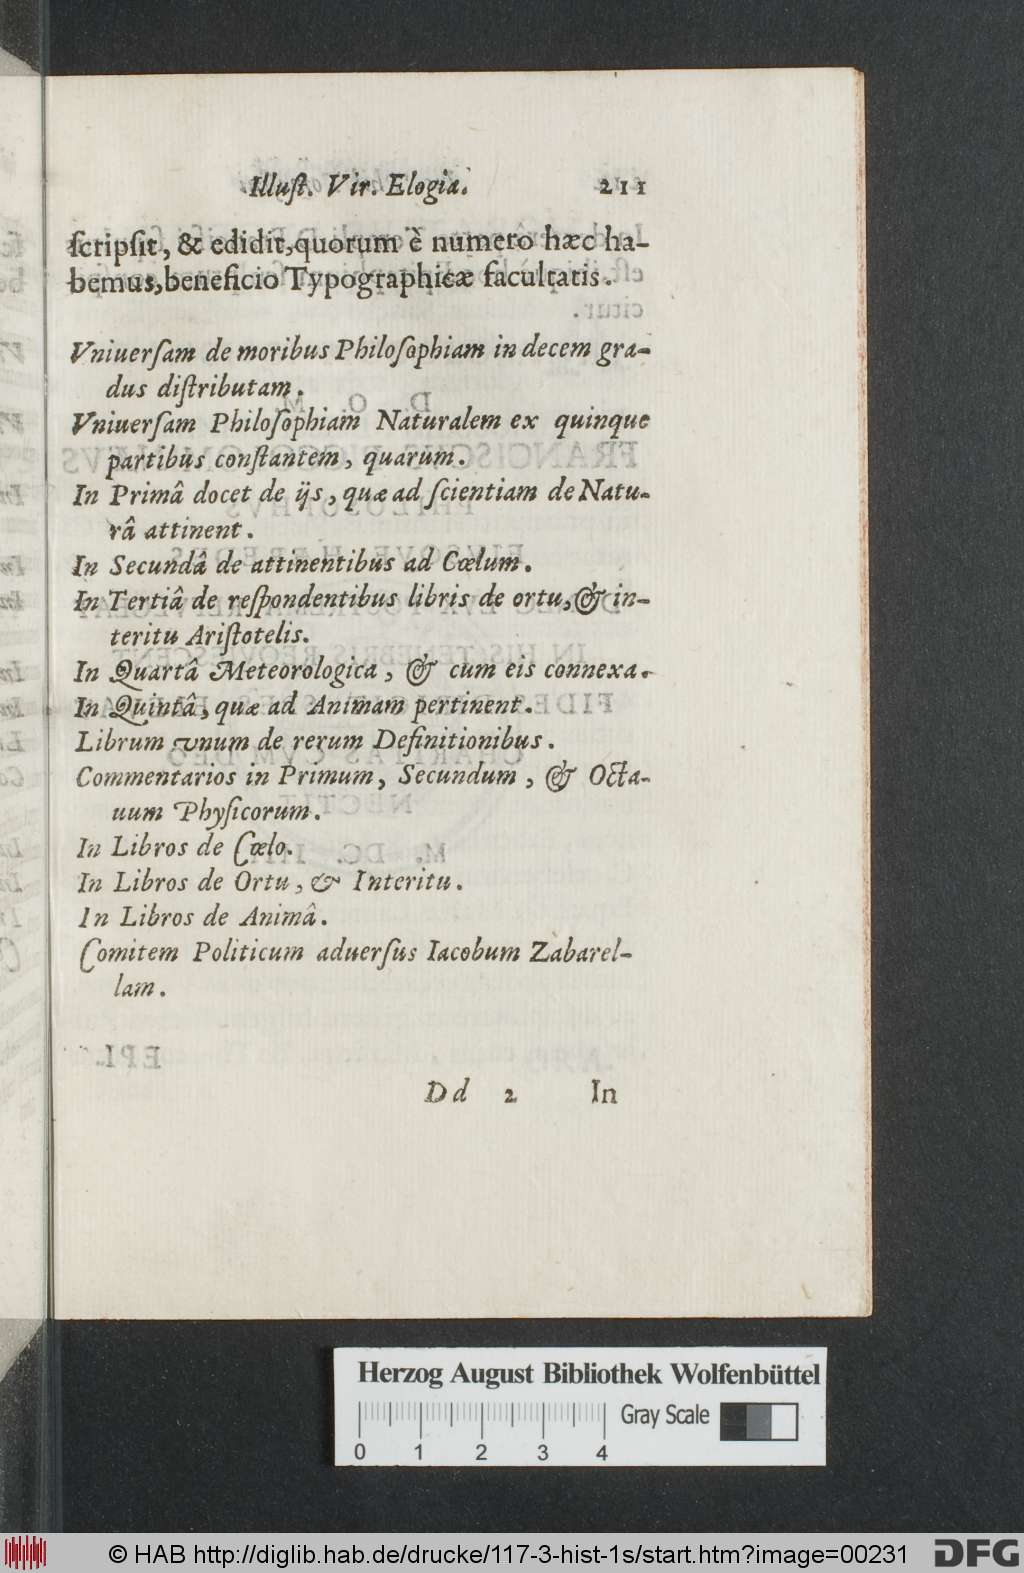 Illuſt. Vir. Elogia. 211
ſcripſit, & edidit, quorum è numero hæc ha-
bemus, beneficio Typographicæ facultatis.
Vniuerſam de moribus Philoſophiam in decem gra-
dus diſtributam.
Vniuerſam Philoſophiam Naturalem ex quinque
partibus conſtantem, quarum.
In Primâ docet de ijs, quæ ad ſcientiam de Natu-
râ attinent.
In Secundâ de attinentibus ad Cœlum.
In Tertiâ de reſpondentibus libris de ortu, & in-
teritu Ariſtotelis.
In Quartâ Meteorologica, & cum eis connexa.
In Quintâ, quæ ad Animam pertinent.
Librum vnum de rerum Definitionibus.
Commentarios in Primum, Secundum, & Octa-
uum Phyſicorum.
In Libros de Cœlo.
In Libros de Ortu, & Interitu.
In Libros de Animâ.
Comitem Politicum aduerſus Iacobum Zabarel-
lam.
Dd 2 In
Herzog August Bibliothek Wolfenbüttel
0 1 2 3 4 Gray Scale
© HAB http://diglib.hab.de/drucke/117-3-hist-1s/start.htm?image=00231 DFG